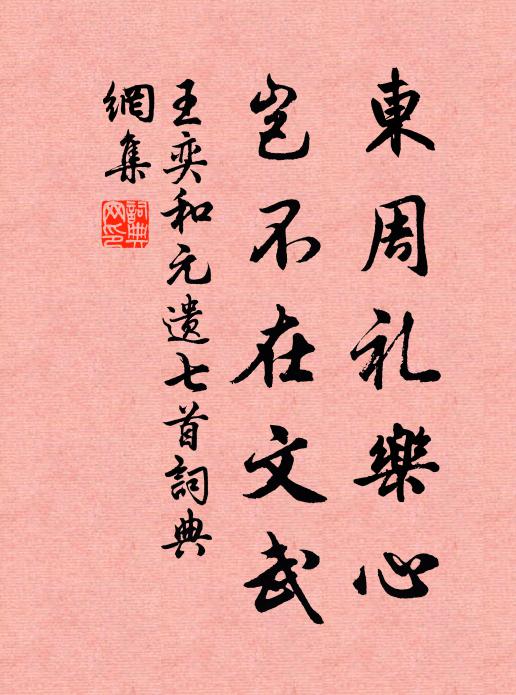 東周礼樂心
岂不在文武
王奕和元遺七首詞典
網集
詞典
网印